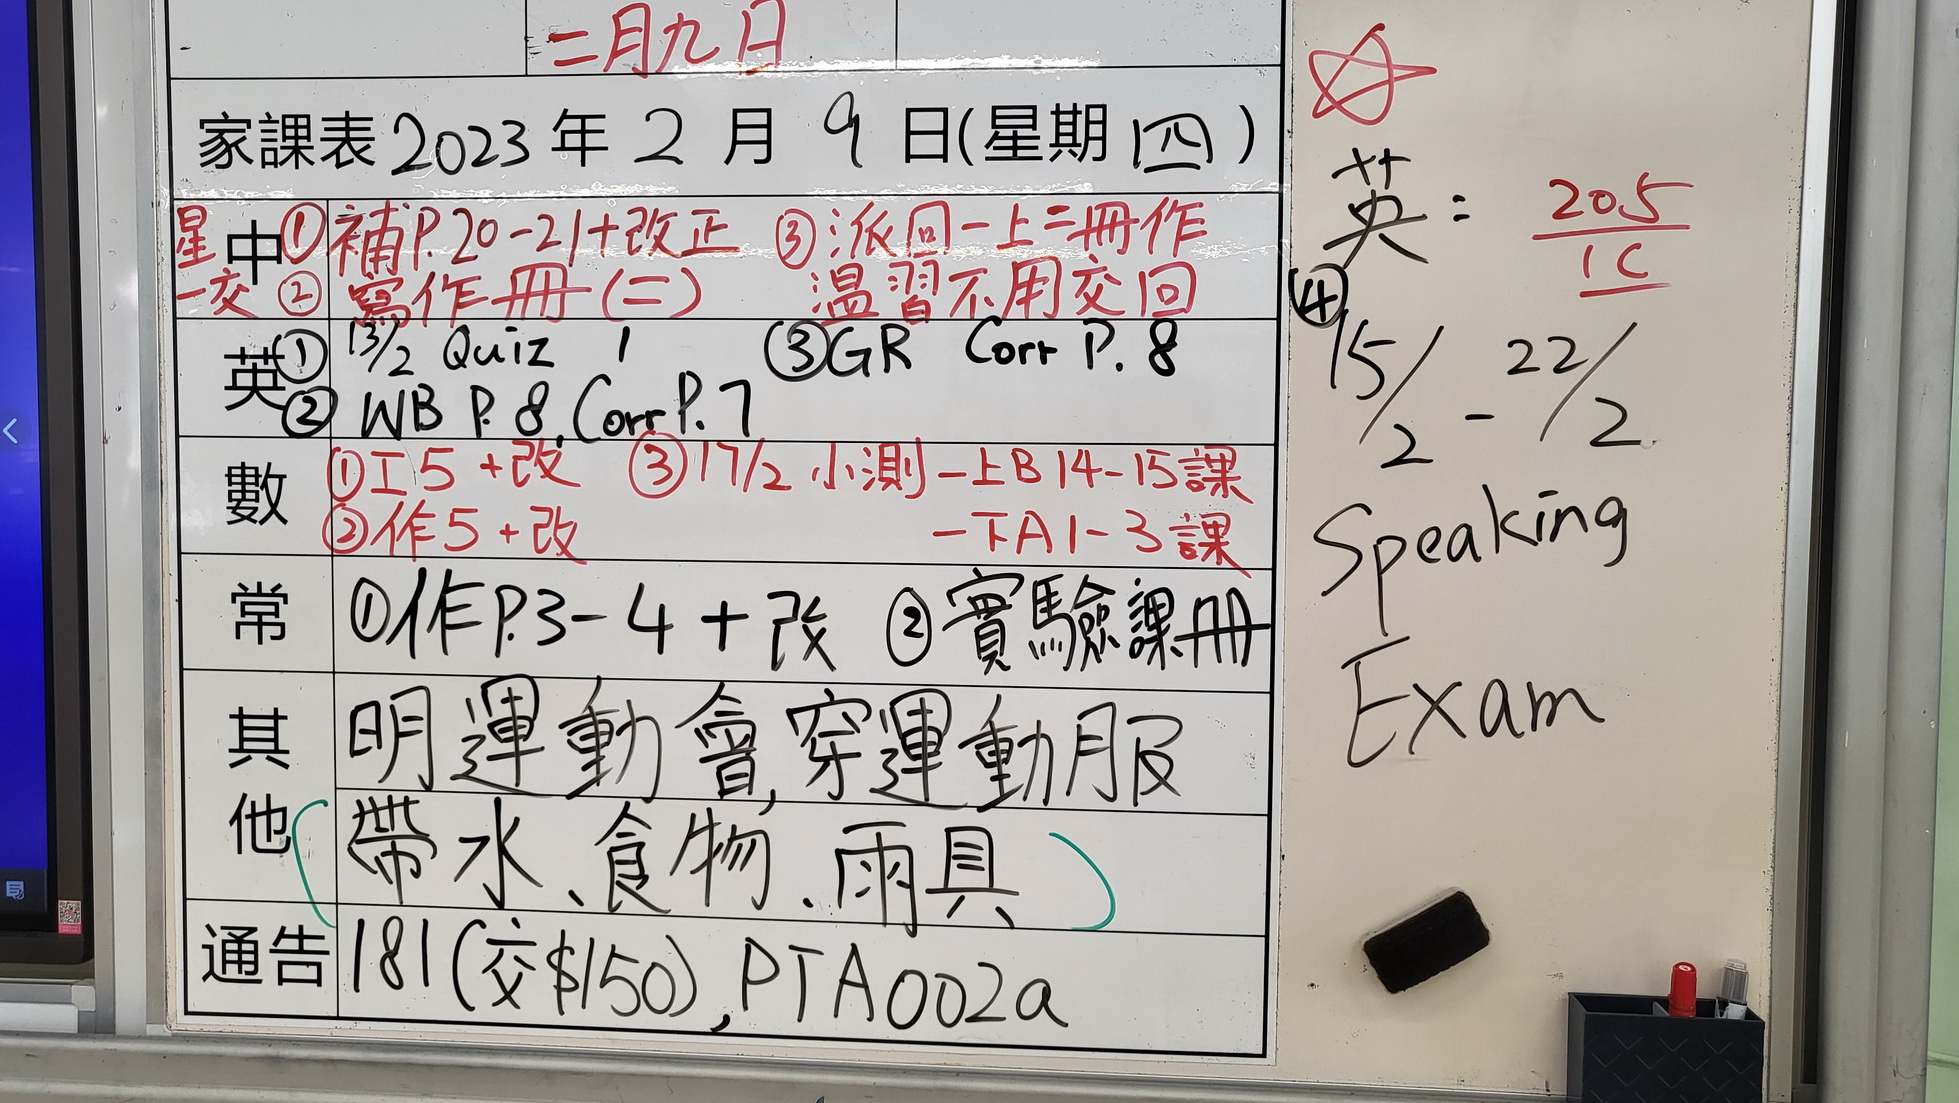 二月九日
家課表2023年2月9日(星期四)
星一交
中 ①補P.20-21+改正 ③派回一上二冊作
②寫作冊(二) 温習不用交回
英 ①13/2 Quiz 1 ③GR Corr P.8
②WB P.8, Corr P.7
數 ①工5+改 ③17/2 小測一上B14-15課
②作5+改 一下A1-3課
常 ①作P.3-4+改 ②實驗課冊
其他 明運動會,穿運動服
(帶水、食物、雨具)
通告 181(交$150),PTA002a
英: 205
1C
④15/2-22/2
Speaking
Exam